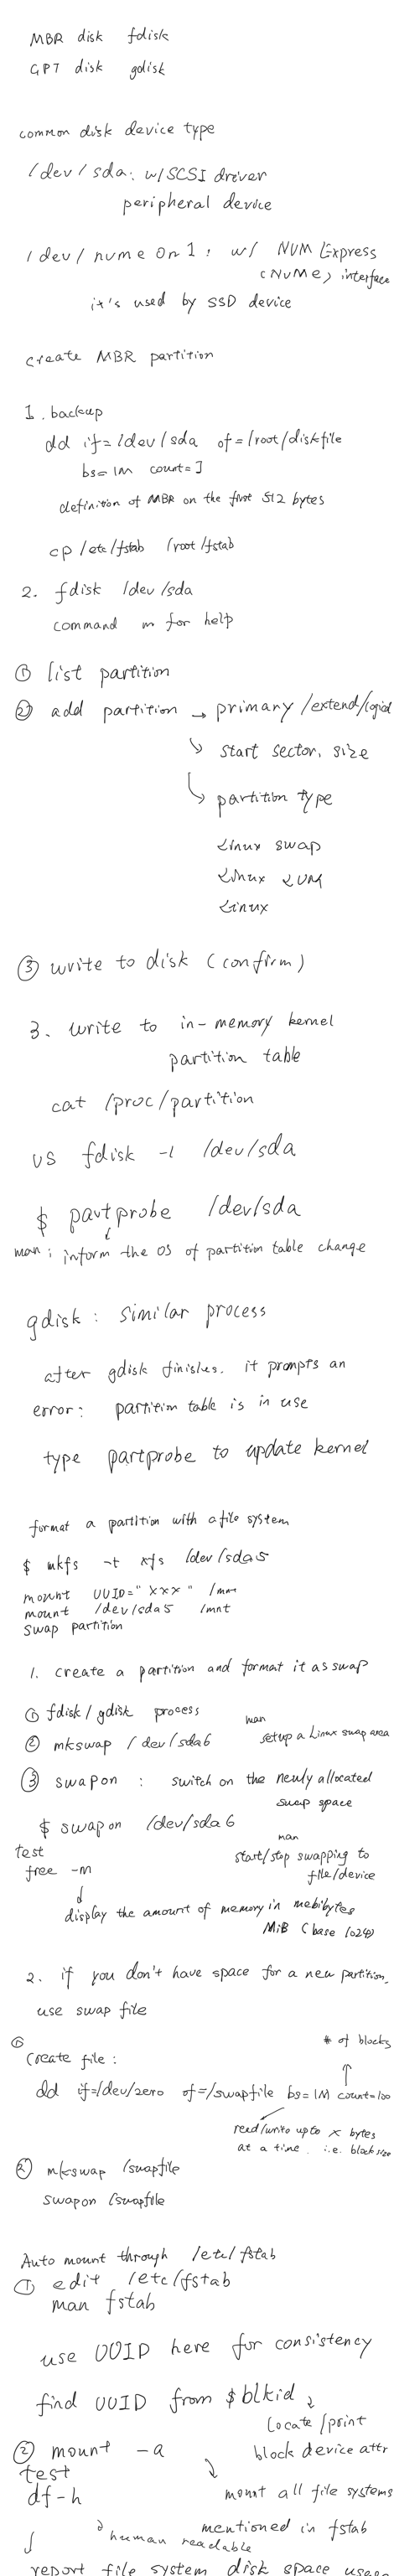 MBR disk fdisk
GPT disk gdisk
common disk device type
/dev/sda: w/SCSI driver
peripheral device
/dev/nvme0n1: w/ NVM Express
(NVMe) interface
it's used by SSD device
create MBR partition
1. backup
dd if=/dev/sda of=/root/diskfile
bs=1M count=1
definition of MBR on the first 512 bytes
cp /etc/fstab /root/fstab
2. fdisk /dev/sda
command m for help
① list partition
② add partition → primary/extend/logical
↳ start sector, size
↳ partition type
Linux swap
Linux LVM
Linux
③ write to disk (confirm)
3. write to in-memory kernel
partition table
cat /proc/partition
vs fdisk -l /dev/sda
$ partprobe /dev/sda
man: inform the OS of partition table change
gdisk: similar process
after gdisk finishes. it prompts an
error: partition table is in use
type partprobe to update kernel
format a partition with a file system
$ mkfs -t xfs /dev/sda5
mount UUID="XXX" /mnt
mount /dev/sda5 /mnt
swap partition
1. create a partition and format it as swap
① fdisk/gdisk process
② mkswap /dev/sda6 man setup a Linux swap area
③ swapon: switch on the newly allocated
swap space
$ swapon /dev/sda6
man
test start/stop swapping to
free -m file/device
↓
display the amount of memory in mebibytes
MiB (base 1024)
2. if you don't have space for a new partition,
use swap file
① # of blocks
create file: ↑
dd if=/dev/zero of=/swapfile bs=1M count=100
read/write up to x bytes
at a time. i.e. block size
② mkswap /swapfile
swapon /swapfile
Auto mount through /etc/fstab
① edit /etc/fstab
man fstab
use UUID here for consistency
find UUID from $blkid
locate/print
② mount -a block device attr
test
df -h mount all file systems
mentioned in fstab
human readable
report file system disk space usage